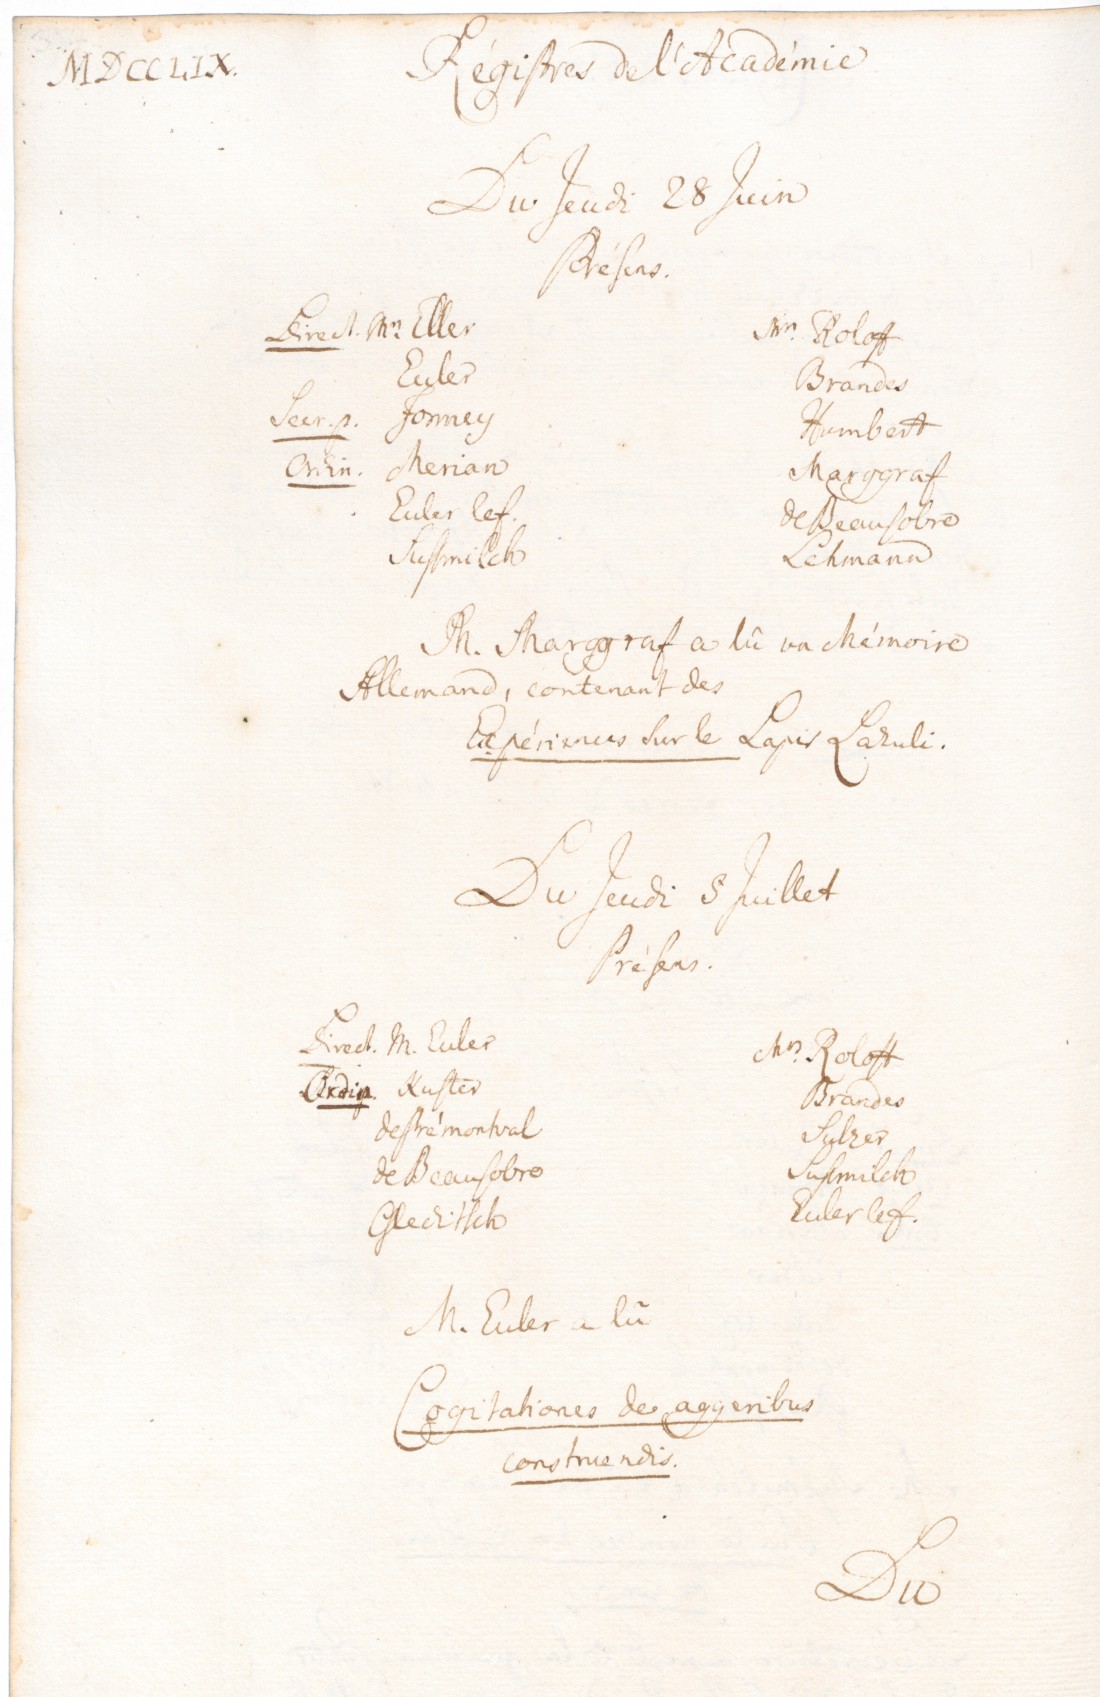 MDCCLIX.
Régistres de l'Académie
Du Jeudi 28 Juin
Présens.
Direct. Mrs Eller
Euler
Secr. p. Formey
Ordin. Merian
Euler le f.
Susmilch
Mrs. Roloff
Brandes
Humbert
Marggraf
de Beausobre
Lehmann
M. Marggraf a lû un Mémoire
Allemand, contenant des
Expériences sur le Lapis Lazuli.
Du Jeudi 5 Juillet
Présens.
Direct. M. Euler
Ordin. Kuster
de Prémontval
de Beausobre
Gleditsch
Mrs Roloff
Brandes
Sulzer
Susmilch
Euler le f.
M. Euler a lû
Cogitationes de aggeribus
construendis.
Du